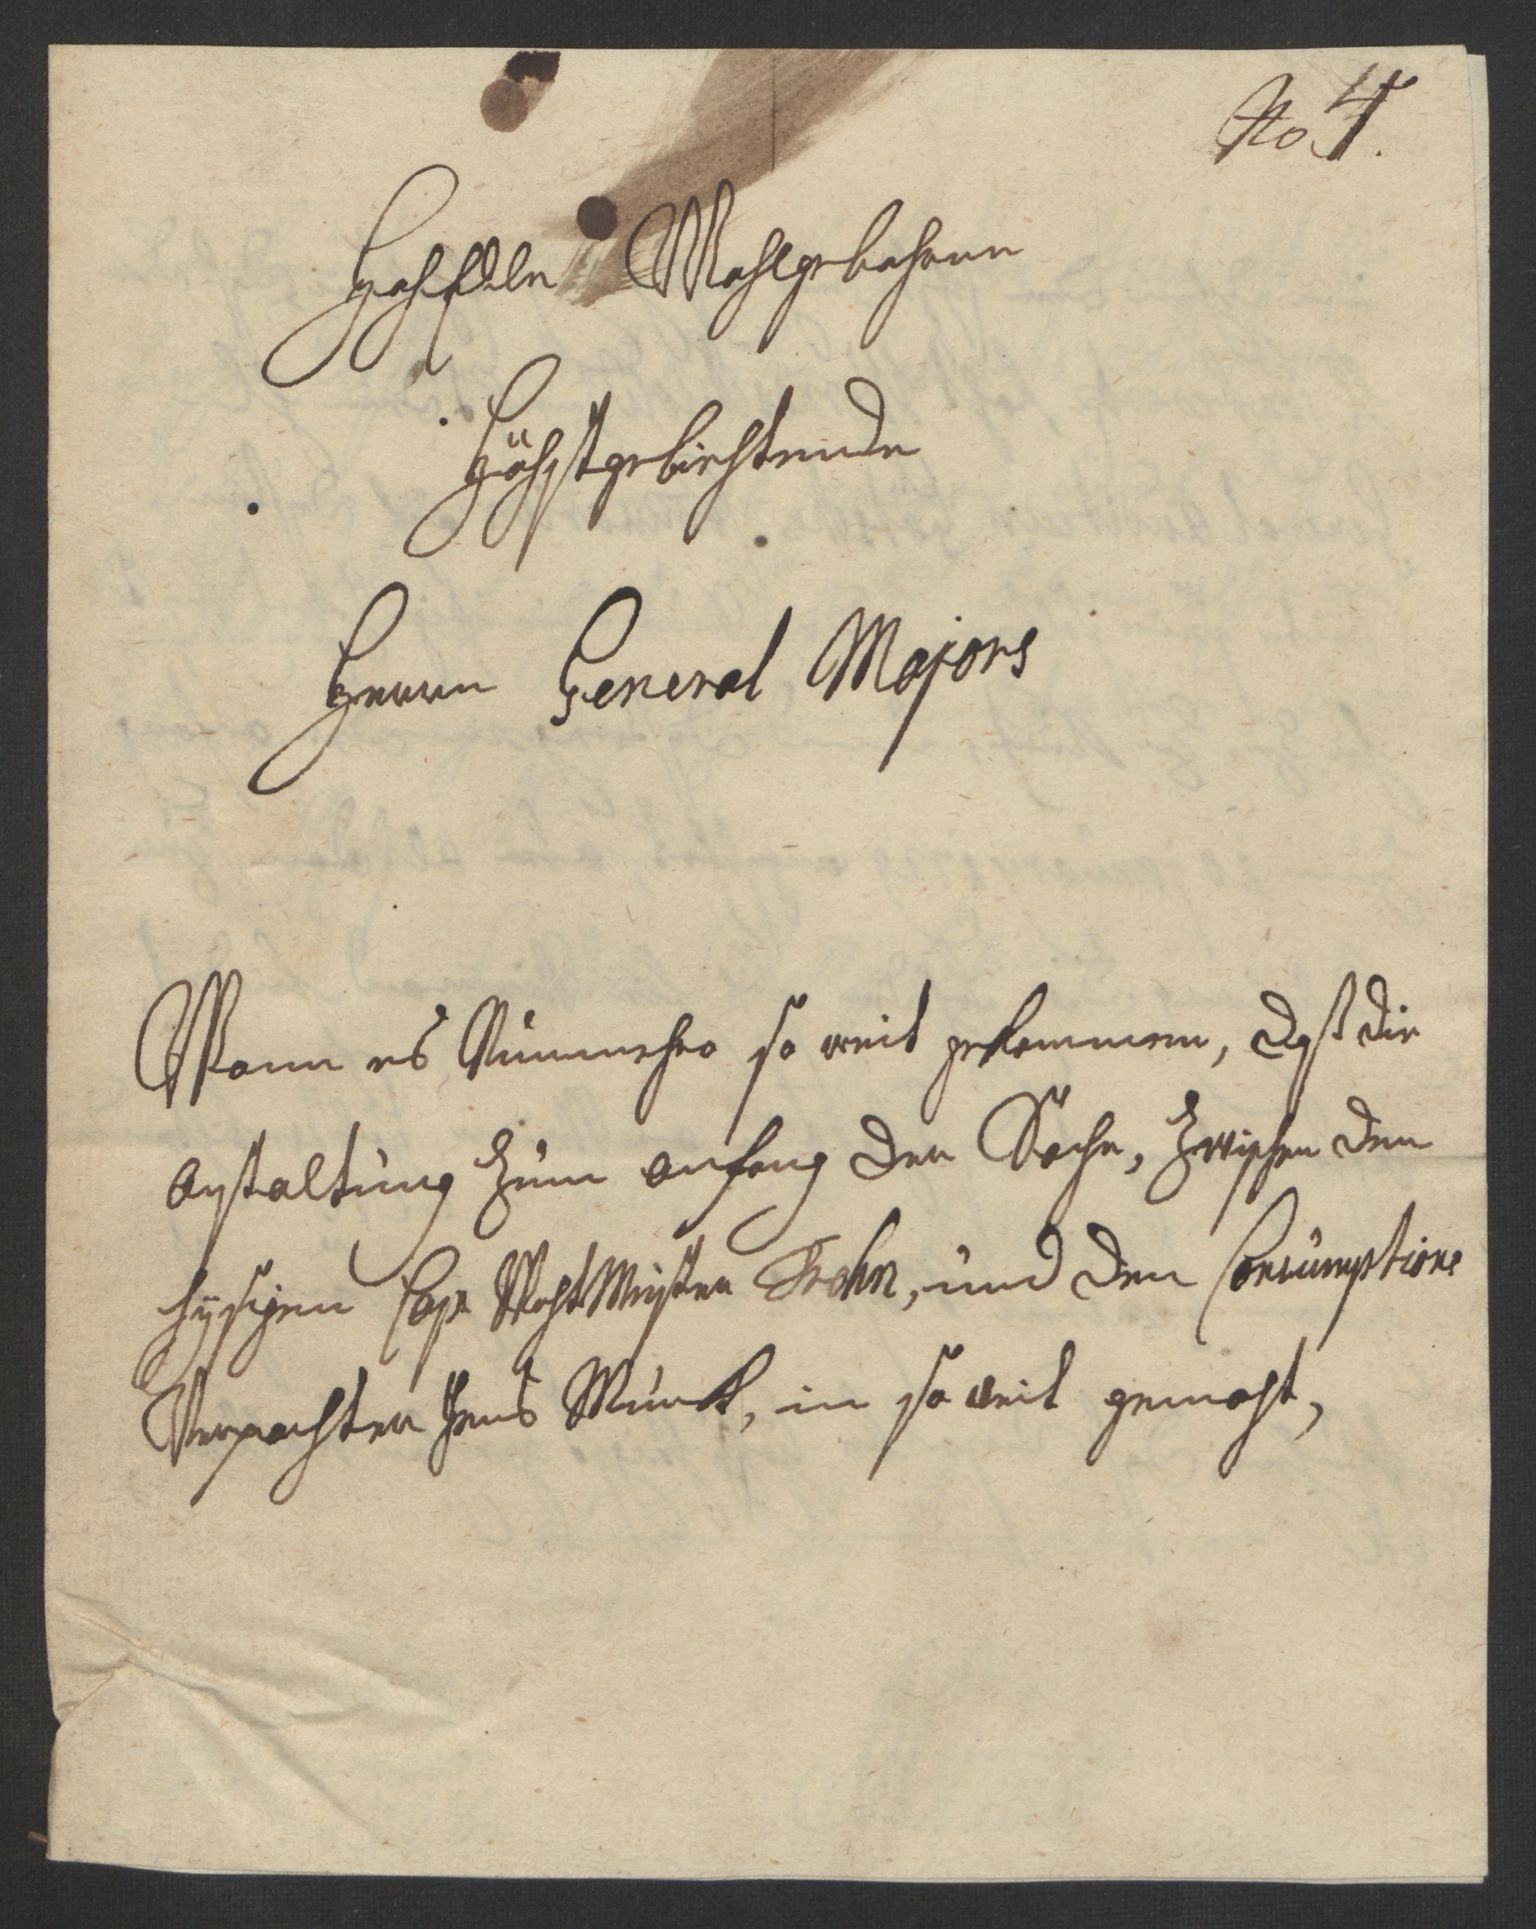 No 4.
HochEdle Wohlgebohrne
Höchstgebiehtende
Herrn General Majors
Wann es Nunmehro so weit gekommen, daß die
anstaltung zum anfang der Sache, Zwischen dem
hysigen Cap: WachtMeister Trohn, und den Consumptions
Verpachter Hans Munck, in so weit gemacht,